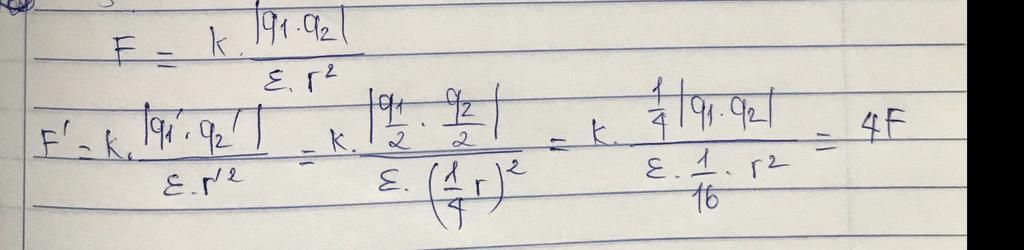 F = k. |q1.q2| / ε.r²
F' = k. |q1'.q2'| / ε.r'² = k. |q1/2 . q2/2| / ε.(1/4 r)² = k. 1/4 |q1.q2| / ε. 1/16 . r² = 4F